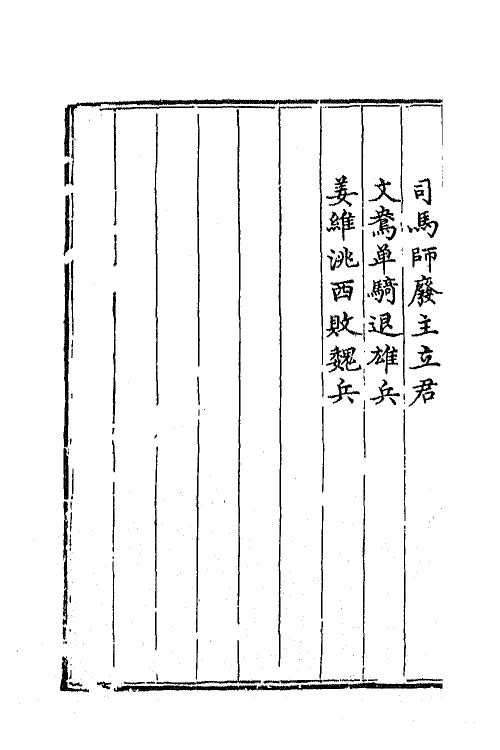 司馬師廢主立君
文鴦单騎退雄兵
姜維洮西敗魏兵